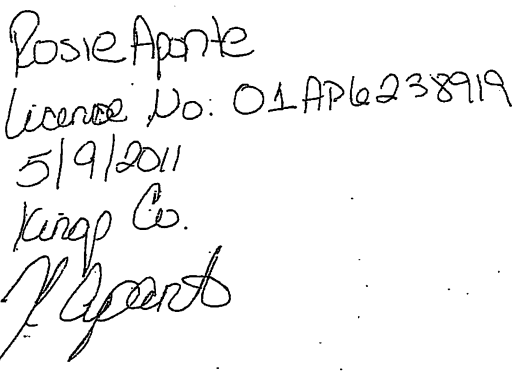 Rosie Aponte
License No: 01AP6238919
5/9/2011
Kings Co.
R Aponte